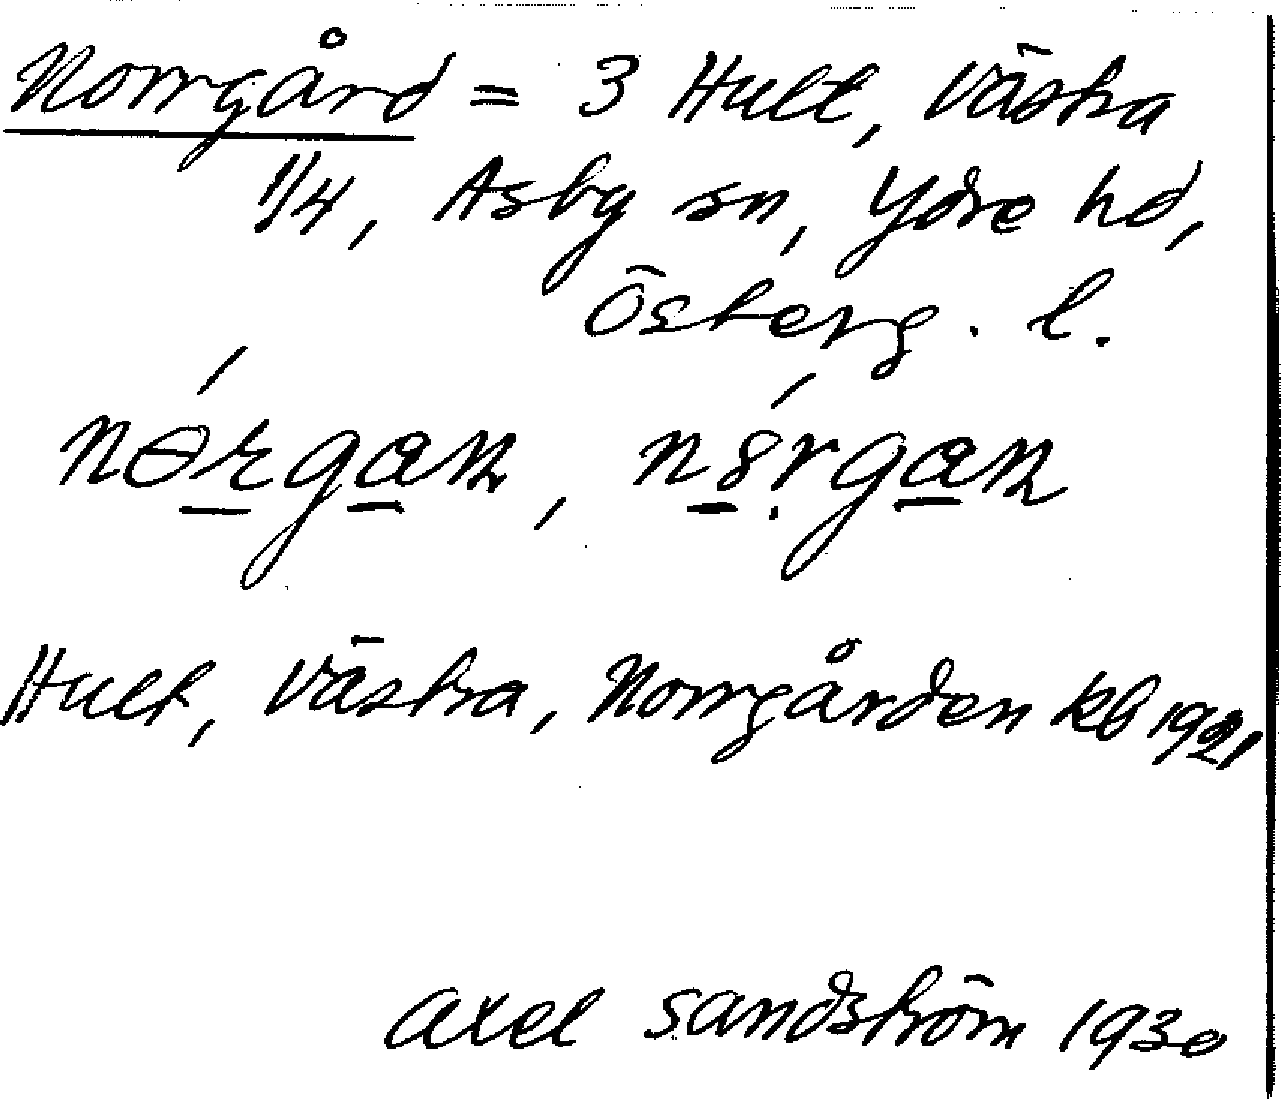 Norrgård = 3 Hult, Västra
1/4, Asby sn, Ydre hd,
Österg. l.
Hult, Västra, Norrgården kb 1921
Axel Sandström 1930